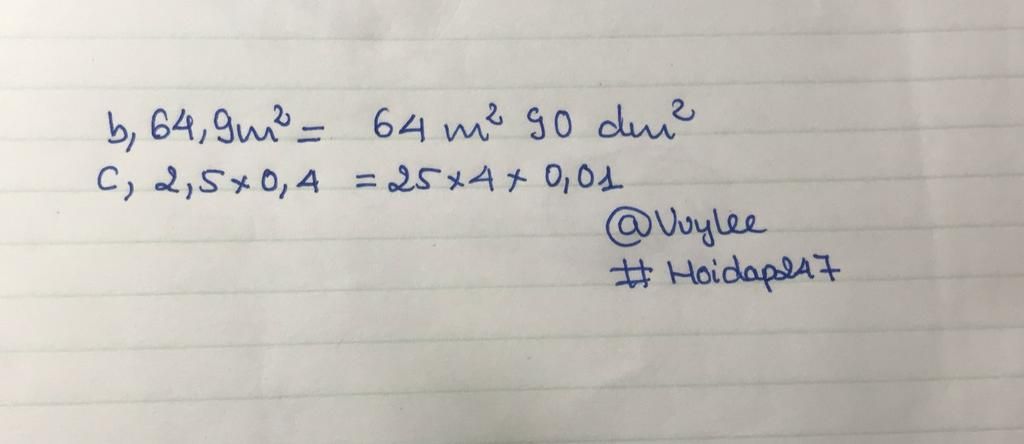 b, 64,9m² = 64 m² 90 dm²
C, 2,5 × 0,4 = 25 × 4 × 0,01
@Vuylee
# Hoidap247